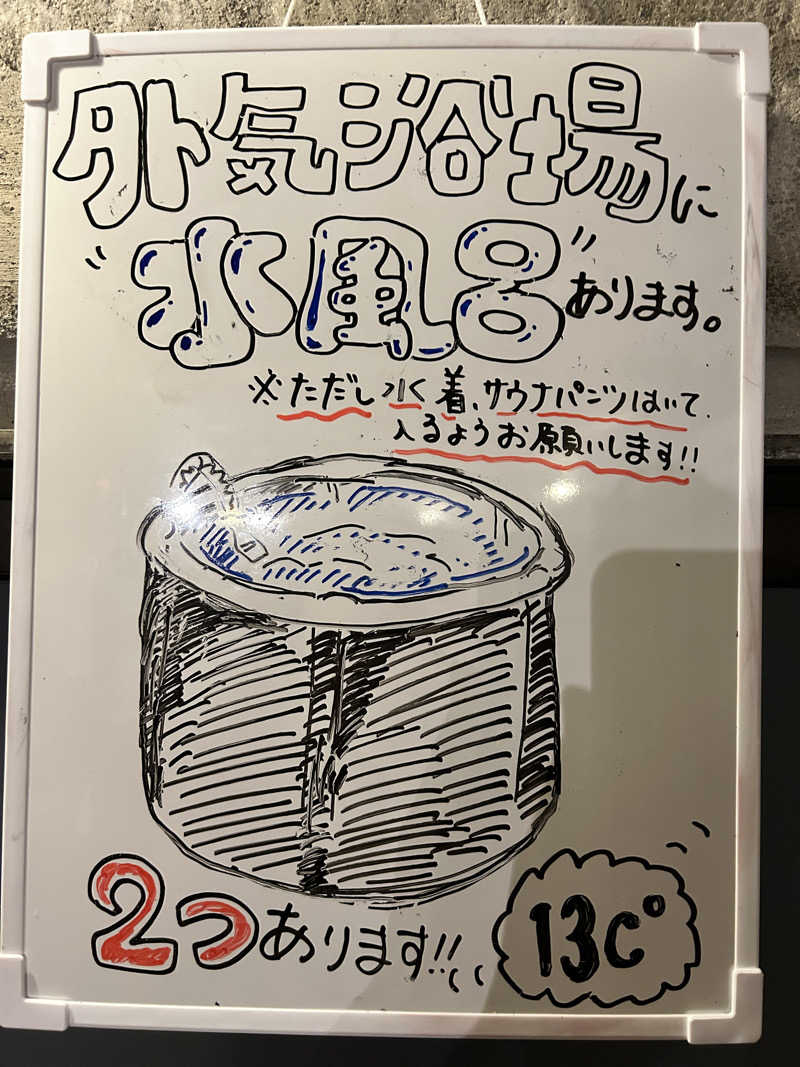 外気浴場に
"水風呂"あります。
※ただし水着、サウナパンツはいて
入るようお願いします!!
2つあります!!
13C°